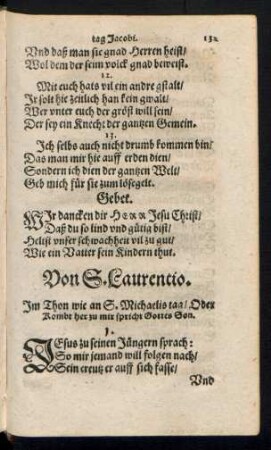 tag Jacobi. 132
Vnd daß man sie gnad Herren heist/
Wol dem der seim volck gnad beweist.
12.
Mit euch hats vil ein andre gstalt/
Ir solt hie zeitlich han kein gwalt/
Wer vnter euch der gröst will sein/
Der sey ein Knecht der gantzen Gemein.
13.
Ich selbs auch nicht drumb kommen bin/
Das man mir hie auff erden dien/
Sondern ich dien der gantzen Welt/
Geb mich für sie zum lösegelt.
Gebet.
WIr dancken dir HERR Jesu Christ/
Daß du so lind vnd gütig bist/
Helist vnser schwachheit vil zu gut/
Wie ein Vatter sein Kindern thut.
Von S. Laurentio.
Im Thon wie an S. Michaelis tag/ Oder
Komdt her zu mir spricht Gottes Son.
1.
JEsus zu seinen Jüngern sprach:
So mir jemand will folgen nach/
Sein creutz er auff sich fasse/
Vnd